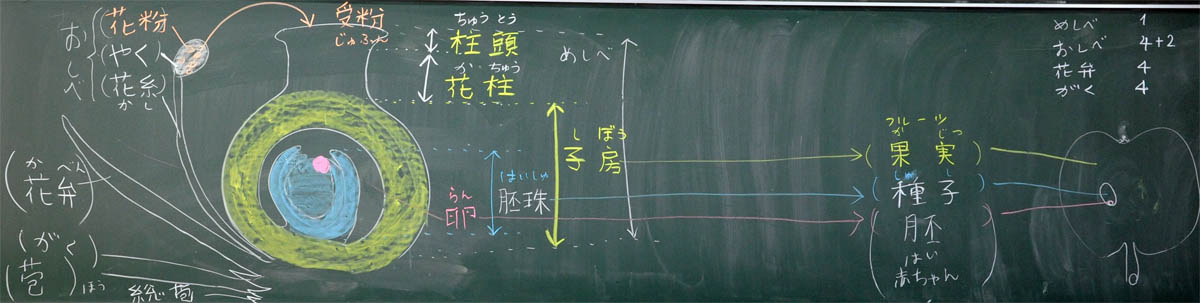 おしべ
(花粉)
(やく)
(花糸)
かし
受粉
じゅふん
ちゅうとう
柱頭
かちゅう
花柱
めしべ
しぼう
子房
はいしゅ
胚珠
らん
卵
(花弁)
かべん
(がく)
(苞)
ほう
総苞
フルーツ
かじつ
(果実)
しゅし
(種子)
(胚
はい
赤ちゃん)
めしべ 1
おしべ 4+2
花弁 4
がく 4